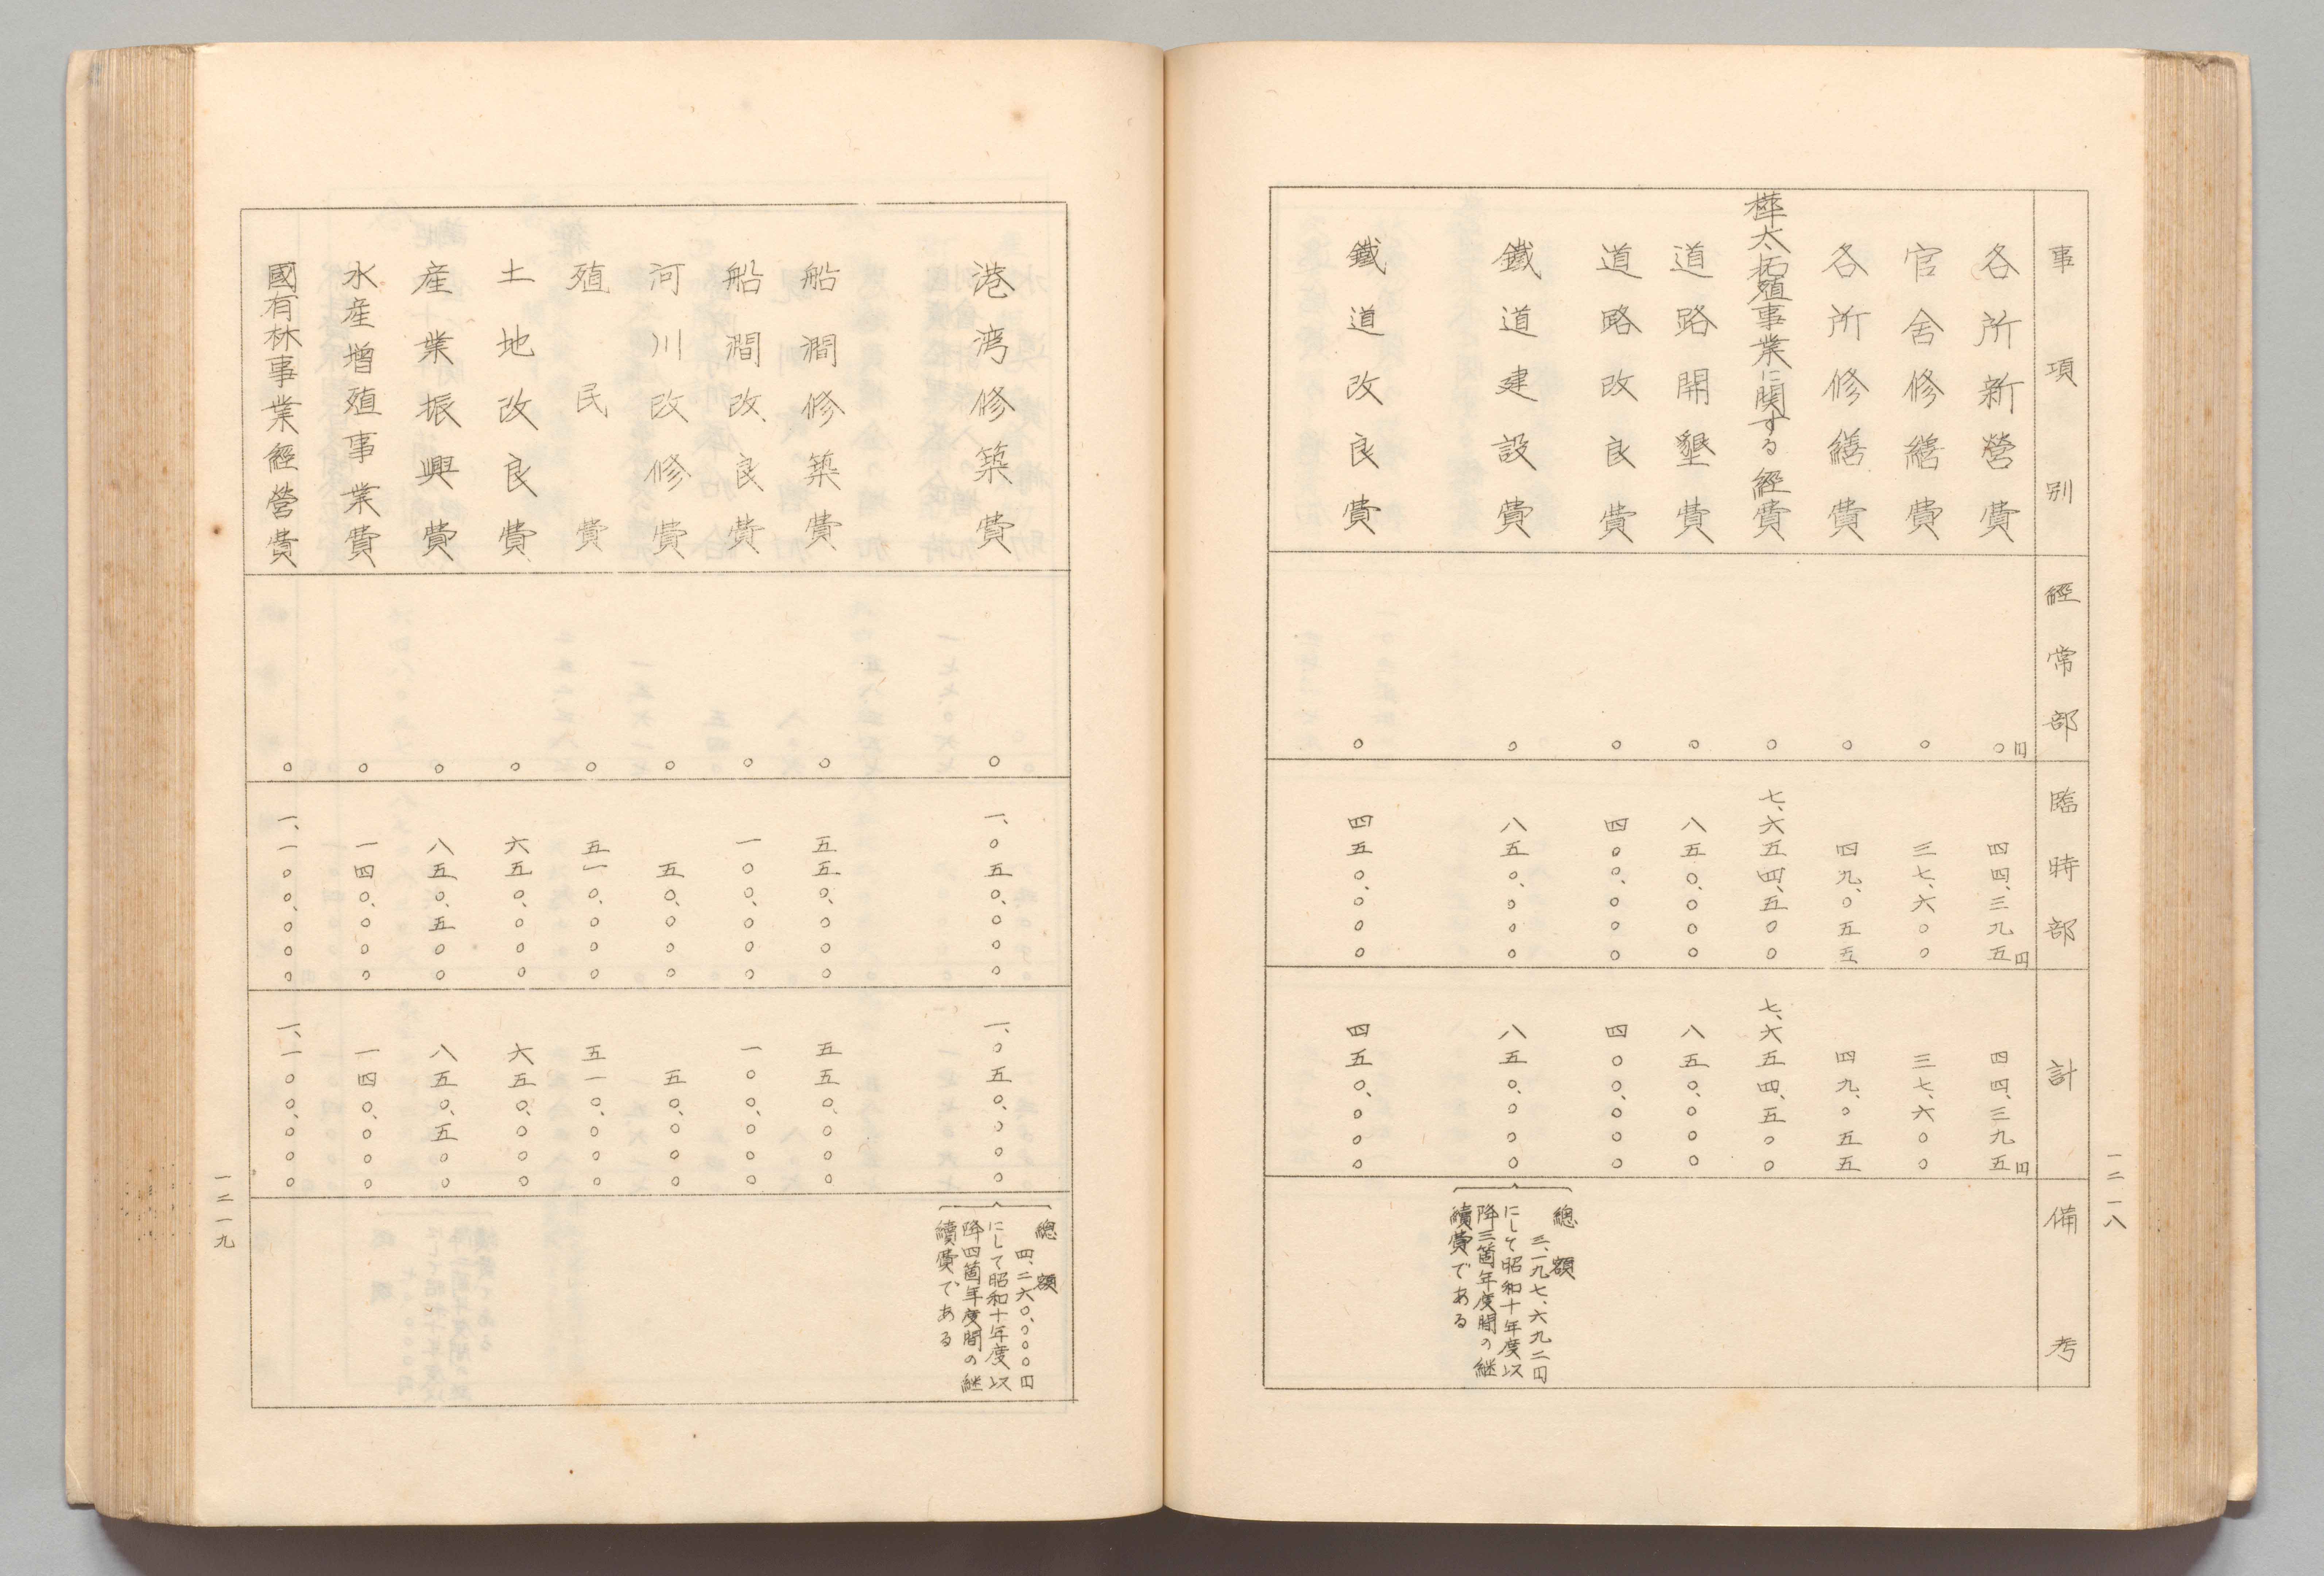 事項別 經常部 臨時部 計 備考
各所新營費 〇円 四四、三九五円 四四、三九五円
官舍修繕費 〇 三七、六〇〇 三七、六〇〇
各所修繕費 〇 四九、〇五五 四九、〇五五
樺太拓殖事業に関する経費 〇 七、六五四、五〇〇 七、六五四、五〇〇
道路開墾費 〇 八五〇、〇〇〇 八五〇、〇〇〇
道路改良費 〇 四〇〇、〇〇〇 四〇〇、〇〇〇
鐵道建設費 〇 八五〇、〇〇〇 八五〇、〇〇〇
總額
三、一九七、六九二円
にして昭和十年度以
降三箇年度間の継
續費である
鐵道改良費 〇 四五〇、〇〇〇 四五〇、〇〇〇
一二一八
港湾修築費 〇 一、〇五〇、〇〇〇 一、〇五〇、〇〇〇
總額
四、二六〇、〇〇〇円
にして昭和十年度以
降四箇年度間の継
續費である
船澗修築費 〇 五五〇、〇〇〇 五五〇、〇〇〇
船澗改良費 〇 一〇〇、〇〇〇 一〇〇、〇〇〇
河川改修費 〇 五〇、〇〇〇 五〇、〇〇〇
殖民費 〇 五一〇、〇〇〇 五一〇、〇〇〇
土地改良費 〇 六五〇、〇〇〇 六五〇、〇〇〇
産業振興費 〇 八五〇、五〇〇 八五〇、五〇〇
水産増殖事業費 〇 一四〇、〇〇〇 一四〇、〇〇〇
國有林事業經營費 〇 一、一〇〇、〇〇〇 一、一〇〇、〇〇〇
一二一九